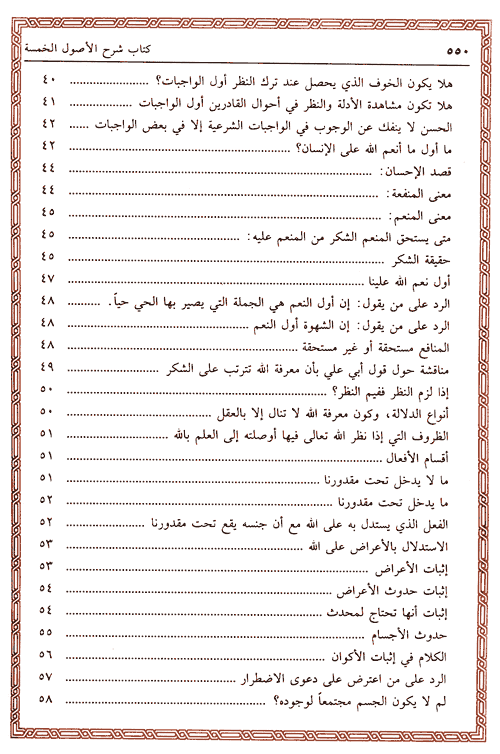 ٥٥٠ كتاب شرح الأصول الخمسة
هلا يكون الخوف الذي يحصل عند ترك النظر أول الواجبات؟ ................ ٤٠
هلا تكون مشاهدة الأدلة والنظر في أحوال القادرين أول الواجبات ................ ٤١
الحسن لا ينفك عن الوجوب في الواجبات الشرعية إلا في بعض الواجبات ...... ٤٢
ما أول ما أنعم الله على الإنسان؟ ................ ٤٢
قصد الإحسان: ................ ٤٤
معنى المنفعة: ................ ٤٤
معنى المنعم: ................ ٤٥
متى يستحق المنعم الشكر من المنعم عليه: ................ ٤٥
حقيقة الشكر ................ ٤٥
أول نعم الله علينا ................ ٤٧
الرد على من يقول: إن أول النعم هي الجملة التي يصير بها الحي حياً. ......... ٤٨
الرد على من يقول: إن الشهوة أول النعم ................ ٤٨
المنافع مستحقة أو غير مستحقة ................ ٤٨
مناقشة حول قول أبي علي بأن معرفة الله تترتب على الشكر ................ ٤٩
إذا لزم النظر ففيم النظر؟ ................ ٥٠
أنواع الدلالة، وكون معرفة الله لا تنال إلا بالعقل ................ ٥٠
الظروف التي إذا نظر الله تعالى فيها أوصلته إلى العلم بالله ................ ٥١
أقسام الأفعال ................ ٥١
ما لا يدخل تحت مقدورنا ................ ٥١
ما يدخل تحت مقدورنا ................ ٥٢
الفعل الذي يستدل به على الله مع أن جنسه يقع تحت مقدورنا ................ ٥٢
الاستدلال بالأعراض على الله ................ ٥٣
إثبات الأعراض ................ ٥٣
إثبات حدوث الأعراض ................ ٥٤
إثبات أنها تحتاج لمحدث ................ ٥٤
حدوث الأجسام ................ ٥٥
الكلام في إثبات الأكوان ................ ٥٦
الرد على من اعترض على دعوى الاضطرار ................ ٥٧
لم لا يكون الجسم مجتمعاً لوجوده؟ ................ ٥٨